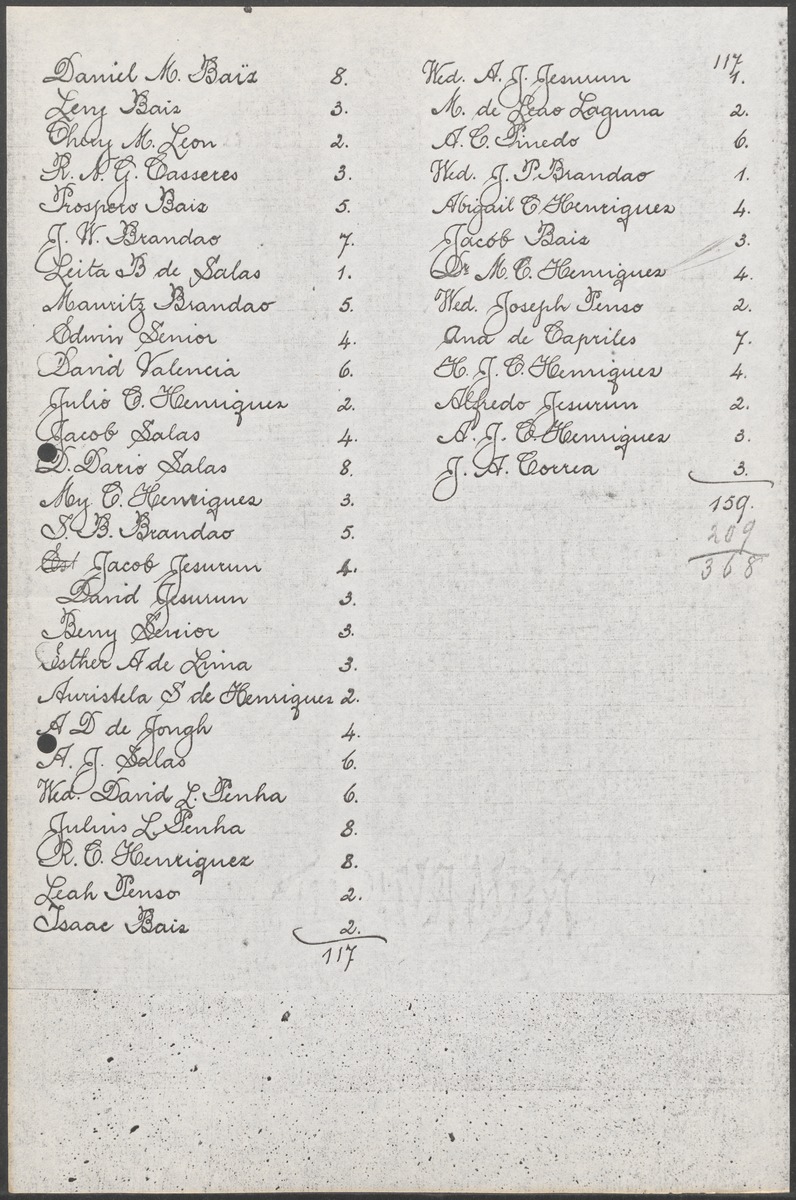 Daniel M. Baïz 8.
Levy Baiz 3.
Thory M. Leon 2.
R. N. G. Casseres 3.
Prospero Baiz 5.
J. W. Brandao 7.
Leita B de Salas 1.
Mauritz Brandao 5.
Edwin Senior 4.
David Valencia 6.
Julio C. Henriquez 2.
Jacob Salas 4.
D. Dario Salas 8.
My C. Henriquez 3.
S. B. Brandao 5.
Est Jacob Jesurun 4.
David Jesurun 3.
Beny Senior 3.
Esther A de Lima 3.
Auristela S de Henriques 2.
A D de Jongh 4.
A. J. Salas 6.
Wed. David L. Penha 6.
Julius L Penha 8.
R. C. Henriquez 8.
Leah Penso 2.
Isaac Baiz 2.
117
117
Wed. A. J. Jesurun 1.
M. de Leao Laguna 2.
A. C. Pinedo 6.
Wed. J. P. Brandao 1.
Abigail C Henriquez 4.
Jacob Baiz 3.
Dr M. C. Henriquez 4.
Wed. Joseph Penso 2.
Ana de Capriles 7.
H. J. C. Henriquez 4.
Alfredo Jesurun 2.
A. J. C. Henriquez 3.
J. A. Correa 3.
159.
209
368